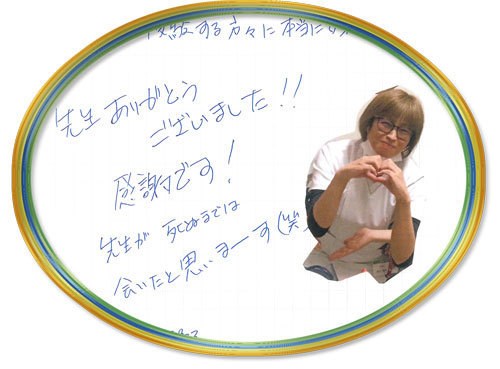 する方々に本当に
先生ありがとう
ございました!!
感謝です!
先生が死ぬまでは
会いたと思いまーす(笑